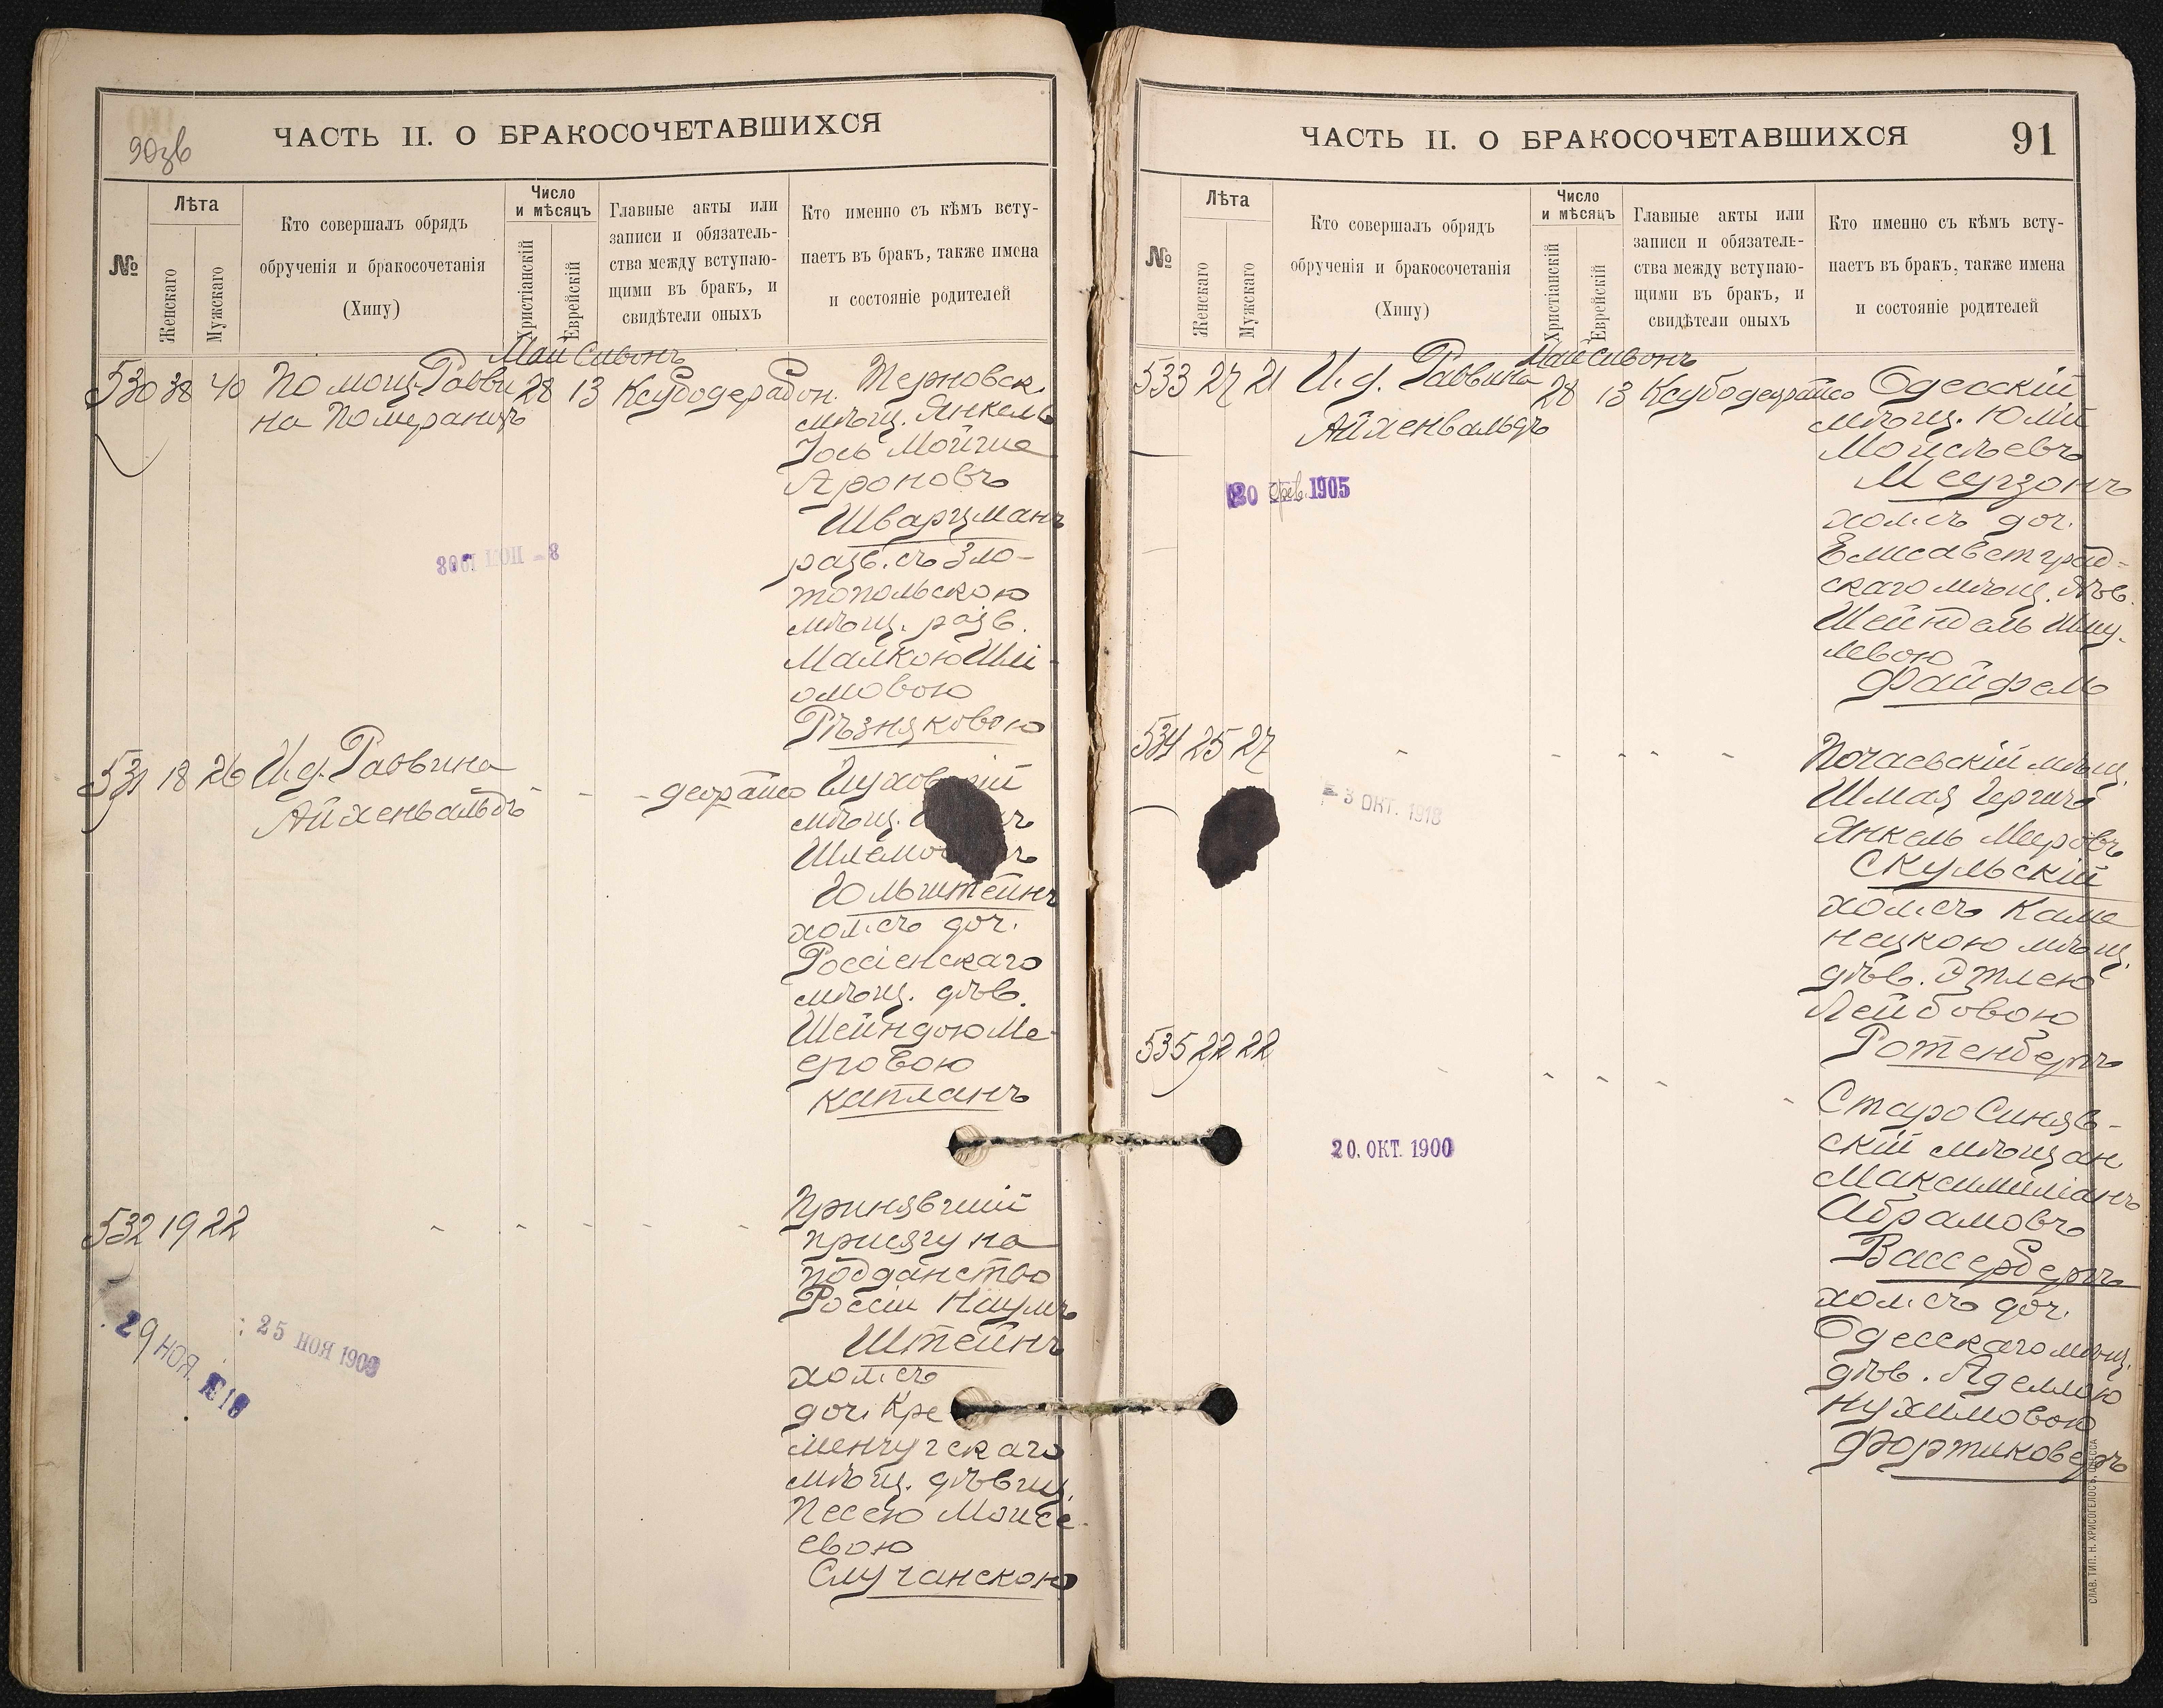 90зв
ЧАСТЬ II. О БРАКОСОЧЕТАВШИХСЯ
№
Лѣта
Женскаго
Мужскаго
Кто совершалъ обрядъ
обрученія и бракосочетанія
(Хипу)
Число
и мѣсяцъ
Христіанскій
Еврейскій
Главные акты или
записи и обязатель-
ства между вступаю-
щими въ бракъ, и
свидѣтели оныхъ
Кто именно съ кѣмъ всту-
паетъ въ бракъ, также имена
и состояніе родителей
Май Сивонъ
530 38 40 Помощ. Равви 28 13 Ксубо дерабон. Терновск.
на Померанцъ
мѣщ. Янкель
Іось Мойше
Ароновъ
Шварцманъ
разв. съ Зло-
топольскою
мѣщ. разв.
Малкою Шлі-
омовою
Рѣзняковою
531 18 26 И. д. Раввина
Айхенвальдъ
- - - деорайсо Глуховскій
мѣщ.
Гольштейнъ
хол. съ доч.
Россіенскаго
мѣщ. дѣв.
Шейндою Ме-
еровою
Капланъ
532 19 22 - - - - -
Принявшій
присягу на
подданство
Россіи Наумъ
Штейнъ
хол. съ
доч. Кре
менчугскаго
мѣщ. дѣвиц.
Песею Моисе-
евою
Случанскою
29 НОЯ. 1910
25 НОЯ 1909
ЧАСТЬ II. О БРАКОСОЧЕТАВШИХСЯ
91
№
Лѣта
Женскаго
Мужскаго
Кто совершалъ обрядъ
обрученія и бракосочетанія
(Хипу)
Число
и мѣсяцъ
Христіанскій
Еврейскій
Главные акты или
записи и обязатель-
ства между вступаю-
щими въ бракъ, и
свидѣтели оныхъ
Кто именно съ кѣмъ всту-
паетъ въ бракъ, также имена
и состояніе родителей
Май Сивонъ
533 27 21 И. д. Раввина 28 13 Ксубо деорайсо Одесскій
Айхенвальдъ
мѣщ. Юлій
Моисѣевъ
Меерзонъ
хол. съ доч.
Елисаветград-
скаго мѣщ. дѣв.
Шейндель Шму-
левою
Файфель
20 фев. 1905
534 25 27 - - - - -
Почаевскій мѣщ.
Шмая Гершъ
Янкель Мееровъ
Скульскій
хол. съ Каме
нецкою мѣщ.
дѣв. Этлею
Лейбовою
Ротенбергъ
- 3 ОКТ. 1918
535 22 22 - - - - -
Старо Синяв-
скій мѣщан.
Максимиліанъ
Абрамовъ
Вассербергъ
хол. съ доч.
Одесскаго мѣщ.
дѣв. Аделлою
Нухимовою
Фортиковеръ
20. ОКТ. 1900
СЛАВ. ТИП. Н. ХРИСОГЕЛОСЪ, ОДЕССА